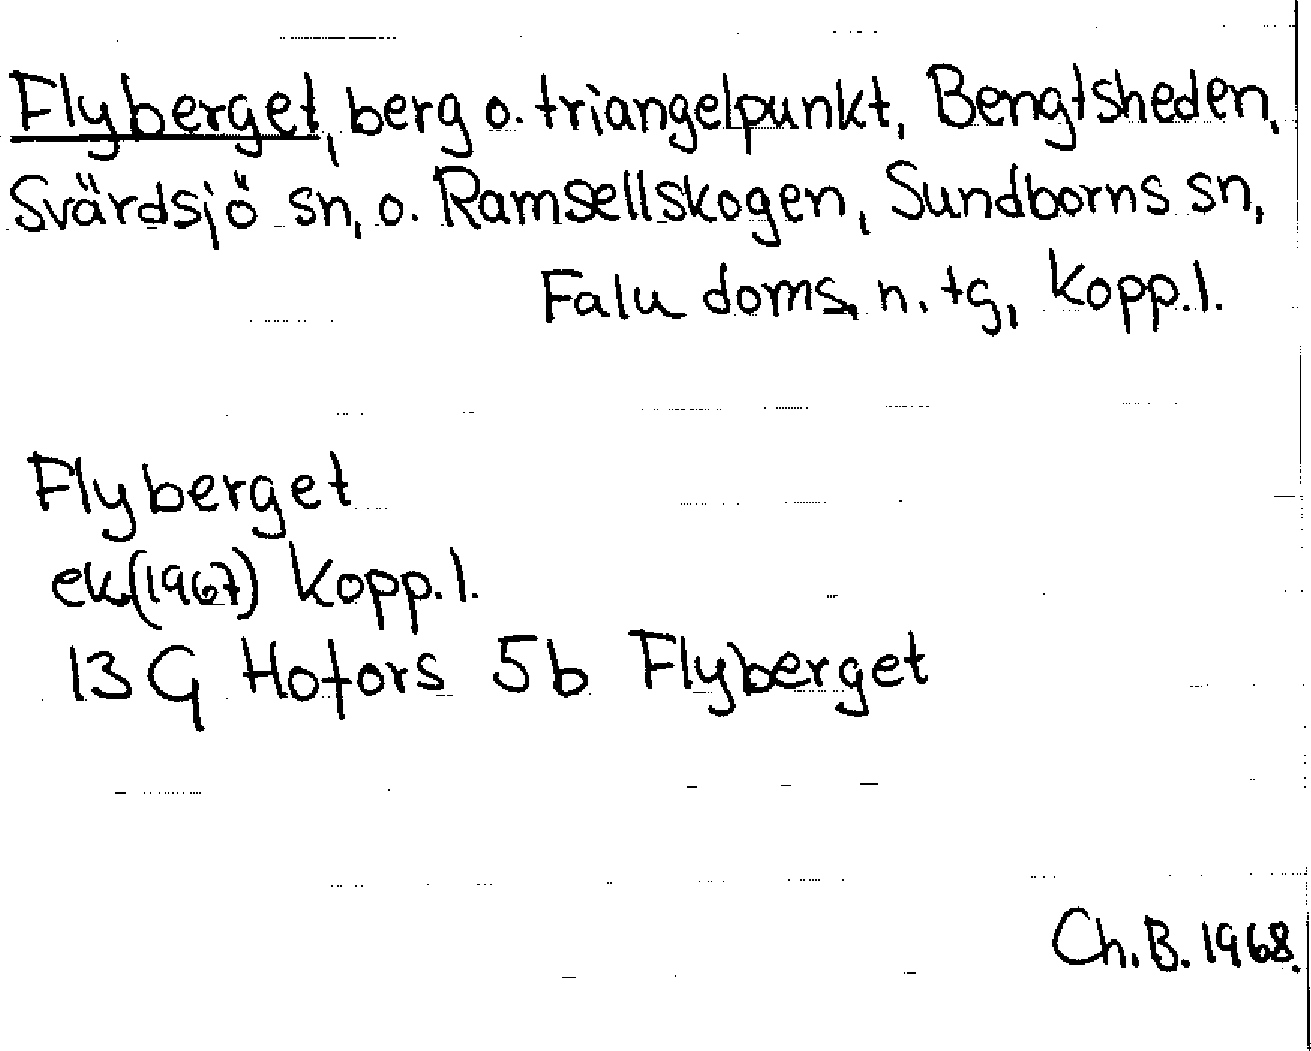 Flyberget, berg o. triangelpunkt, Bengtsheden,
Svärdsjö sn, o. Ramsellskogen, Sundborns sn,
Falu doms. n. tg, Kopp. l.
Flyberget
ek.(1967) Kopp. l.
13 G Hofors 5b Flyberget
Ch. B. 1968.